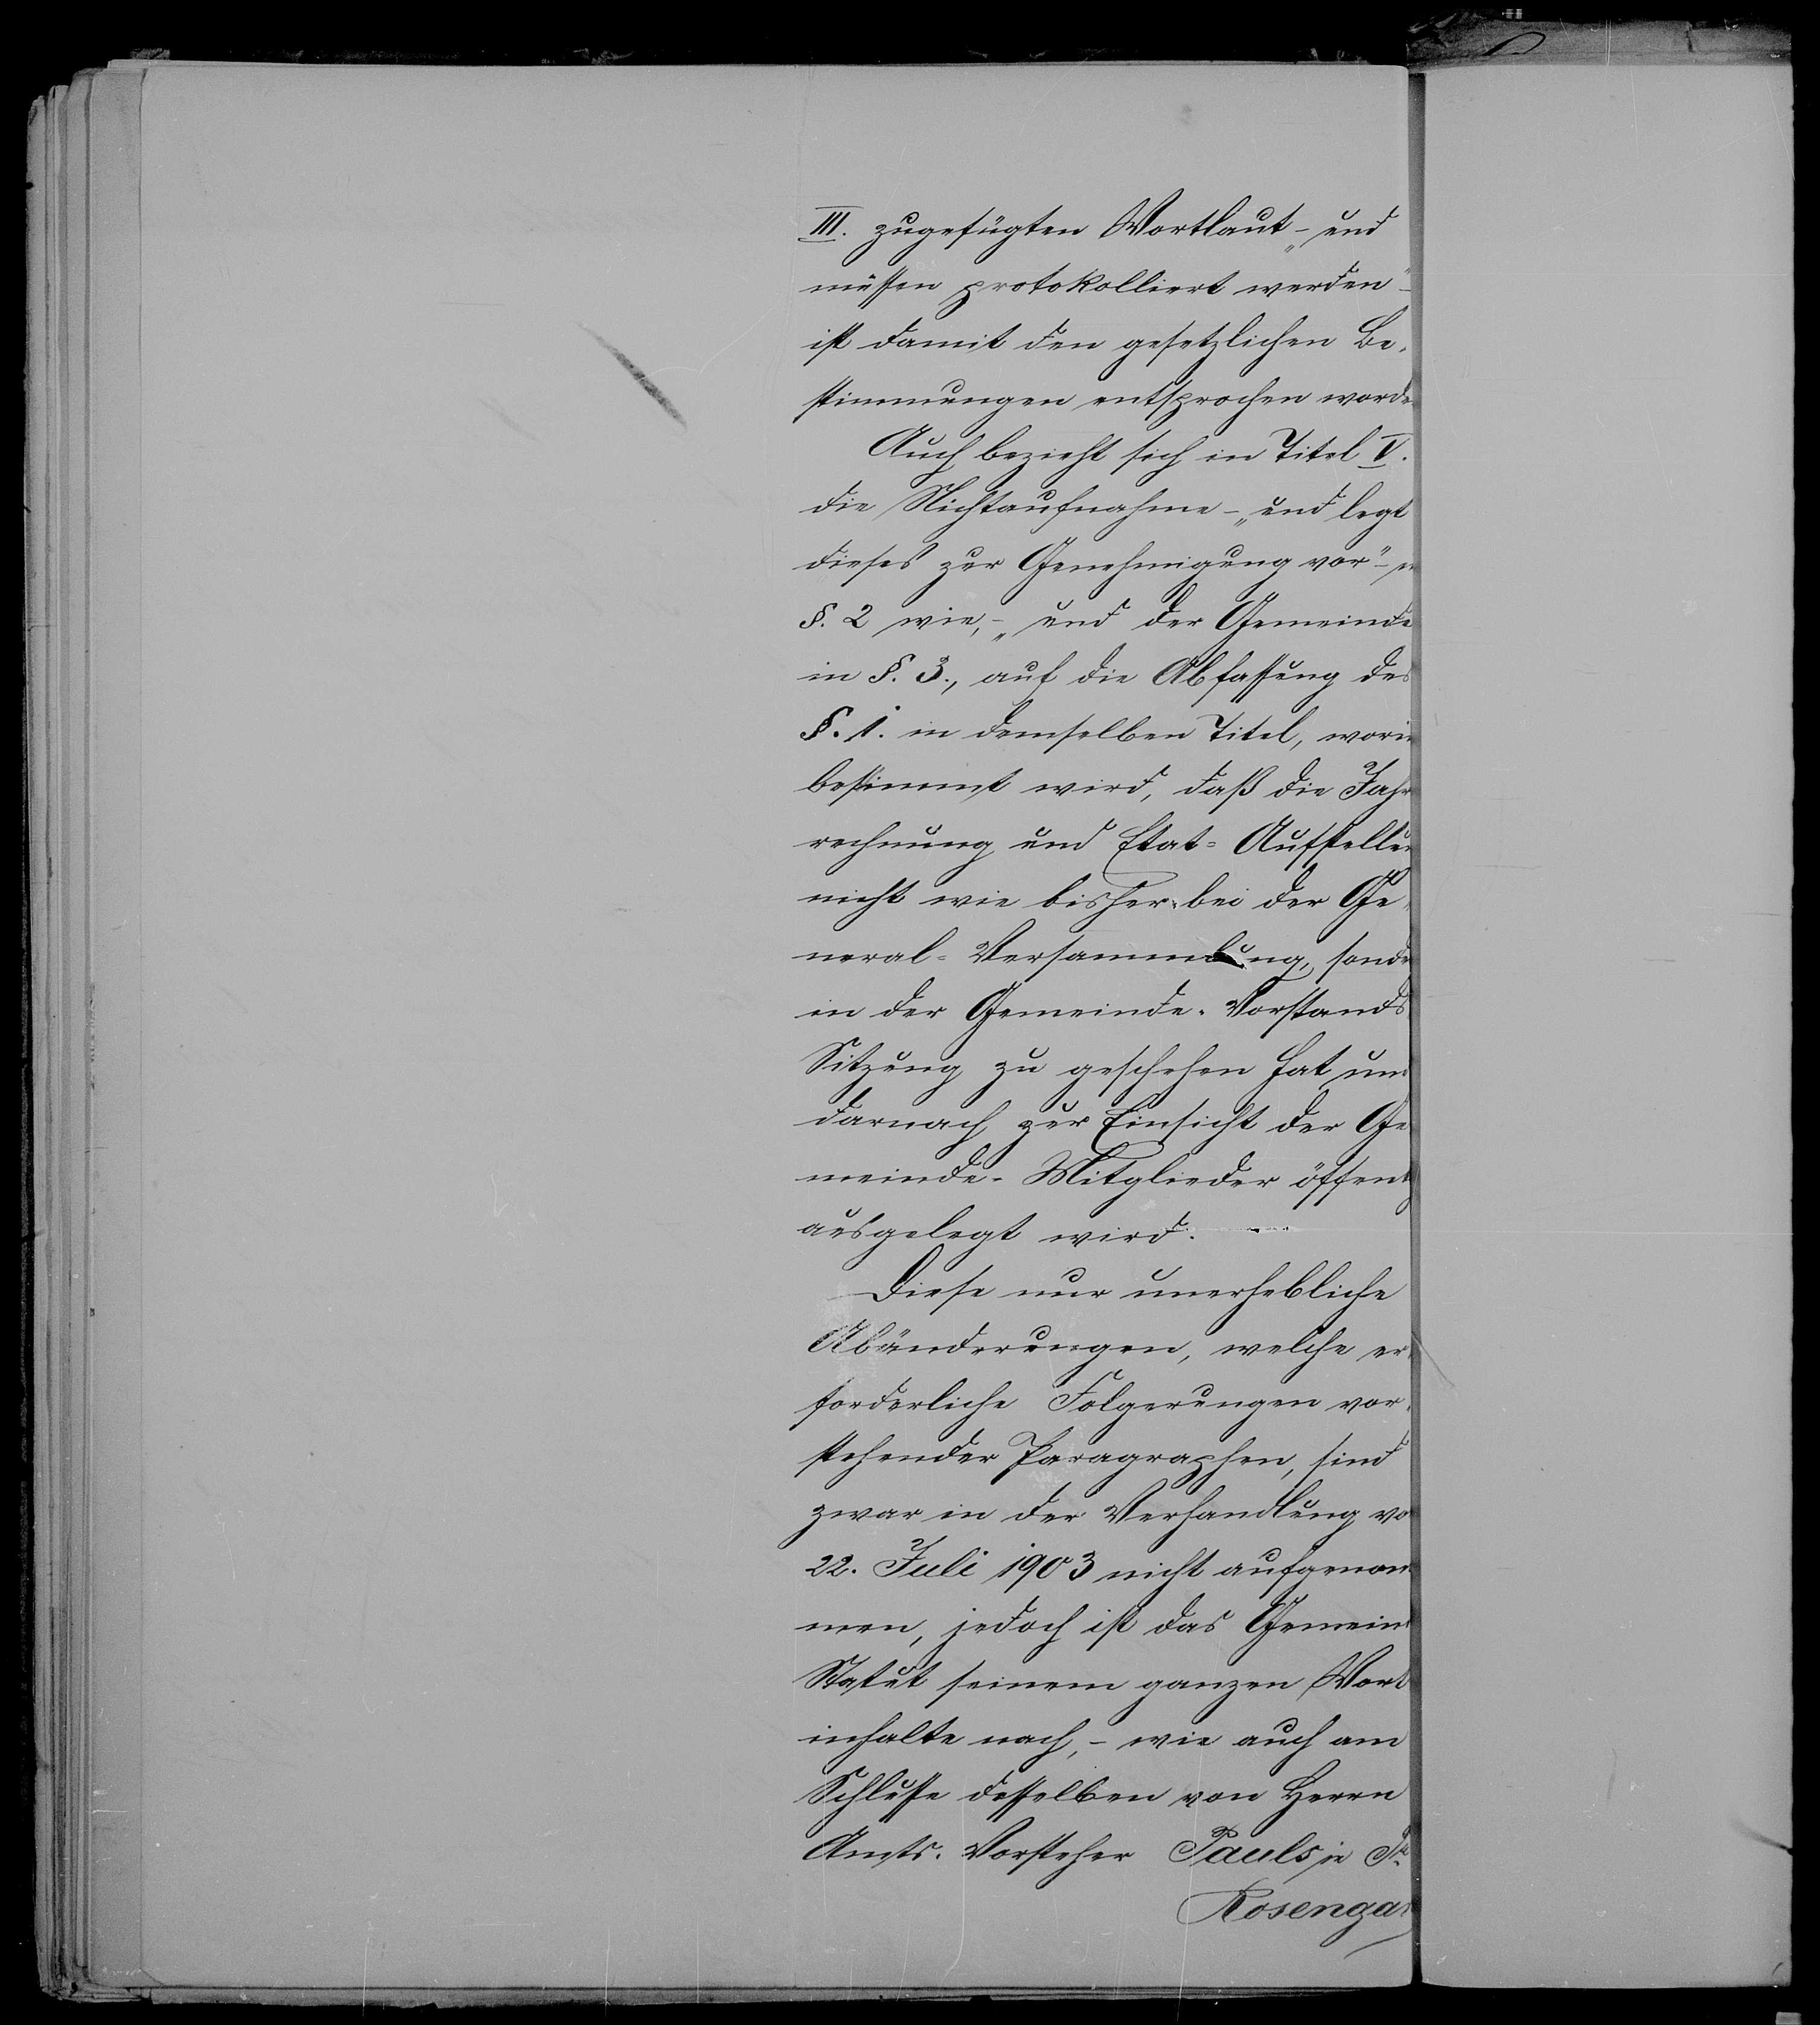 III. zugefügten Wortlaut - „und
müssen protokolliert werden" -
ist damit den gesetzlichen Be-
stimmungen entsprochen worde
Auch bezieht sich in Titel V.
die Nichtaufnahme - „und legt
dieses zur Genehmigung vor" -
§. 2 wie, - „und der Gemeinde
in §. 3., auf die Abfassung des
§. 1. in demselben Titel, worin
bestimmt wird, daß die Jahr
rechnung und Etat-Aufstellun
nicht wie bisher bei der Ge-
neral-Versammlung, sonde
in der Gemeinde-Vorstands
Sitzung zu geschehen hat und
darnach zur Einsicht der Ge
meinde-Mitglieder öffentl
ausgelegt wird. -
Diese nur unerhebliche
Abänderungen, welche er-
forderliche Folgerungen vor-
stehender Paragraphen, sind
zwar in der Verhandlung vo
22. Juli 1903 nicht aufgenom
men, jedoch ist das Gemeind
Statut seinem ganzen Wort
inhalte nach, - wie auch am
Schlusse desselben von Herrn
Amts-Vorsteher Pauls in Pr.
Rosengar